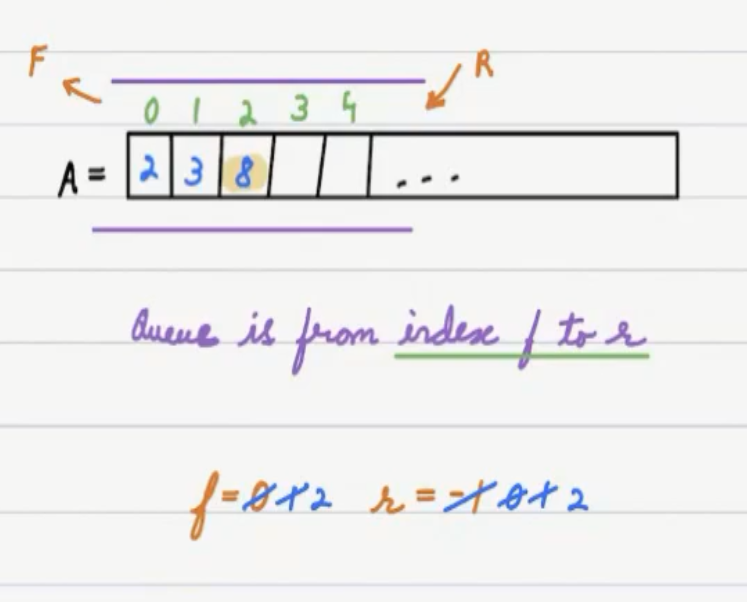 F R
0 1 2 3 4
A = 2 3 8 ...
Queue is from index f to r
f = 0 1 2 r = -1 0 1 2